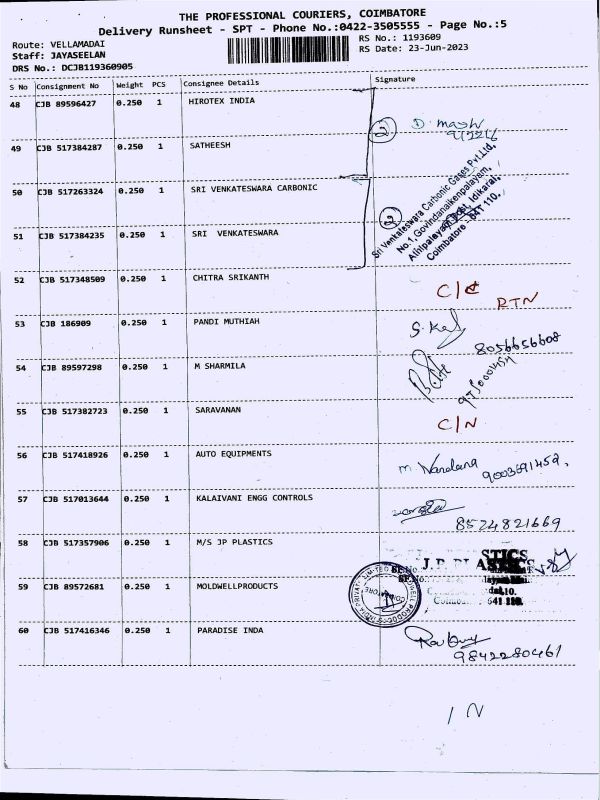 THE PROFESSIONAL COURIERS, COIMBATORE
Delivery Runsheet - SPT - Phone No.:0422-3505555 - Page No.:5
Route: VELLAMADAI
RS No.: 1193609
Staff: JAYASEELAN
RS Date: 23-Jun-2023
DRS No.: DCJB119360905
S No Consignment No Weight PCS Consignee Details Signature
48 CJB 89596427 0.250 1 HIROTEX INDIA
2
49 CJB 517384287 0.250 1 SATHEESH
50 CJB 517263324 0.250 1 SRI VENKATESWARA CARBONIC
Sri Venkateswara Carbonic Gases Pvt.Ltd,
No.1, Govindanaikenpalayam,
Athipalayam Post, Idikarai,
Coimbatore - 641 110.
51 CJB 517384235 0.250 1 SRI VENKATESWARA
52 CJB 517348509 0.250 1 CHITRA SRIKANTH
RTN
53 CJB 186909 0.250 1 PANDI MUTHIAH
8056656608
54 CJB 89597298 0.250 1 M SHARMILA
55 CJB 517382723 0.250 1 SARAVANAN C/N
56 CJB 517418926 0.250 1 AUTO EQUIPMENTS
m. Nandana
9003691459.
57 CJB 517013644 0.250 1 KALAIVANI ENGG CONTROLS
8524821669
58 CJB 517357906 0.250 1 M/S JP PLASTICS
J.P. PLASTICS
59 CJB 89572681 0.250 1 MOLDWELLPRODUCTS
641 110.
60 CJB 517416346 0.250 1 PARADISE INDA
9842280461
1 N